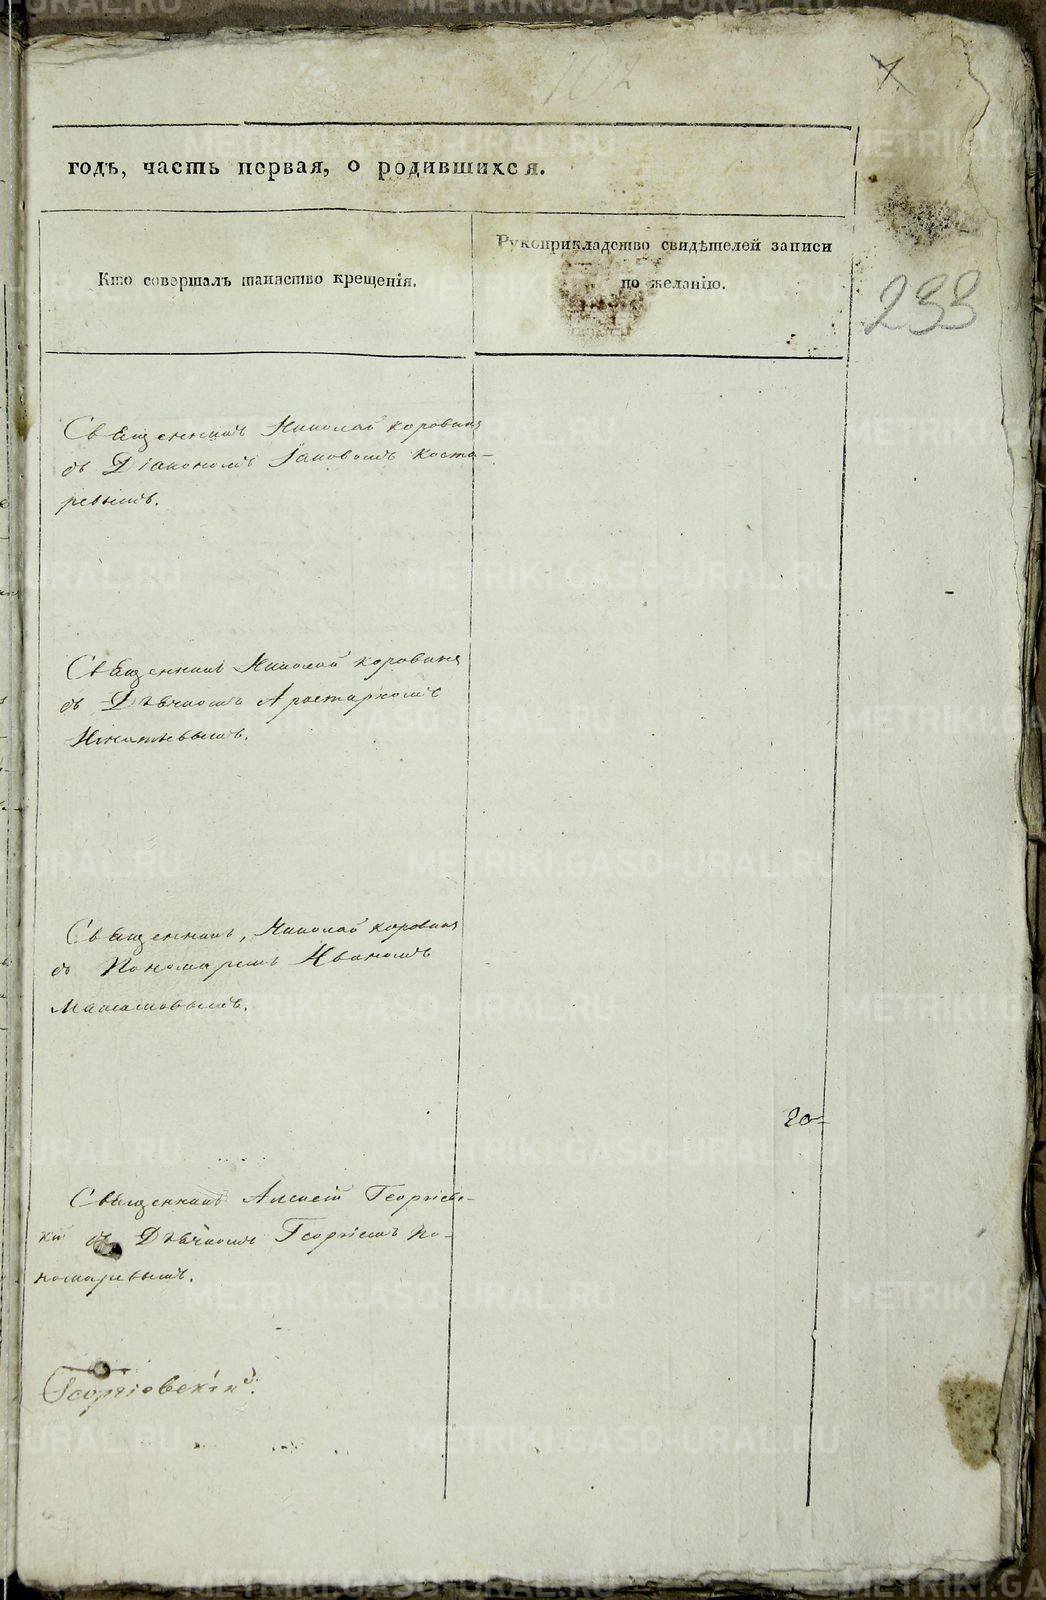 годъ, часть первая, о родившихся.
Кто совершалъ таинство крещенія.
Рукоприкладство свидѣтелей записи
по желанію.
233
Священникъ Николай Коровинъ
съ Діакономъ Іаковомъ Коста-
ревымъ.
Священникъ Николай Коровинъ
съ Дьячкомъ Аристархомъ
Игнатьевымъ.
Священникъ, Николай Коровинъ
съ Пономаремъ Иваномъ
Священникъ Алексѣй Георгіевс-
кій съ Дьячкомъ Георгіемъ По-
номаревымъ.
Георгіевскій.
METRIKI.GASO-URAL.RU